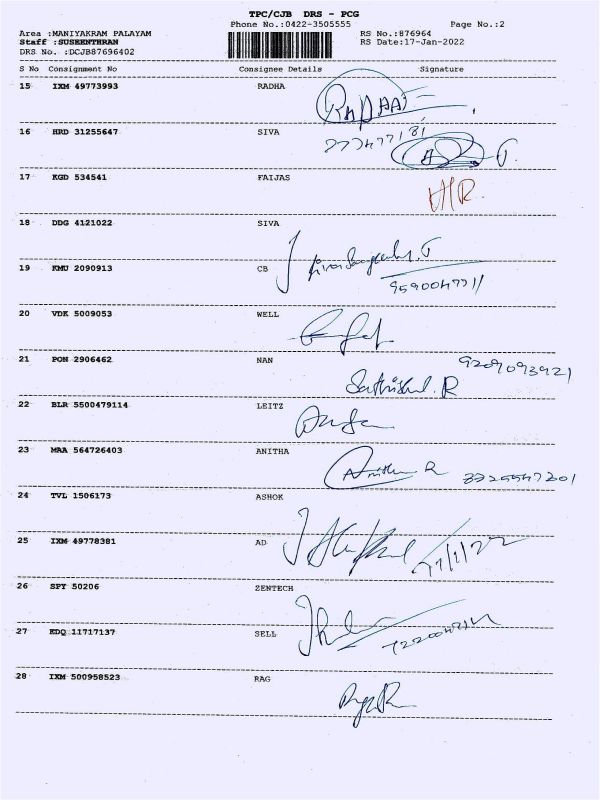 TPC/CJB DRS - PCG
Phone No.:0422-3505555 Page No.:2
Area :MANIYAKRAM PALAYAM RS No.:876964
Staff :SUSEENTHRAN RS Date:17-Jan-2022
DRS No. :DCJB87696402
S No Consignment No Consignee Details Signature
15 IXM 49773993 RADHA
16 HRD 31255647 SIVA
17 KGD 534541 FAIJAS
18 DDG 4121022 SIVA
19 KMU 2090913 CB
9590047711
20 VDK 5009053 WELL
21 PON 2906462 NAN
Sathishul. R
22 BLR 5500479114 LEITZ
23 MAA 564726403 ANITHA
Anitha R
24 TVL 1506173 ASHOK
25 IXM 49778381 AD
26 SPY 50206 ZENTECH
27 EDQ 11717137 SELL
28 IXM 500958523 RAG